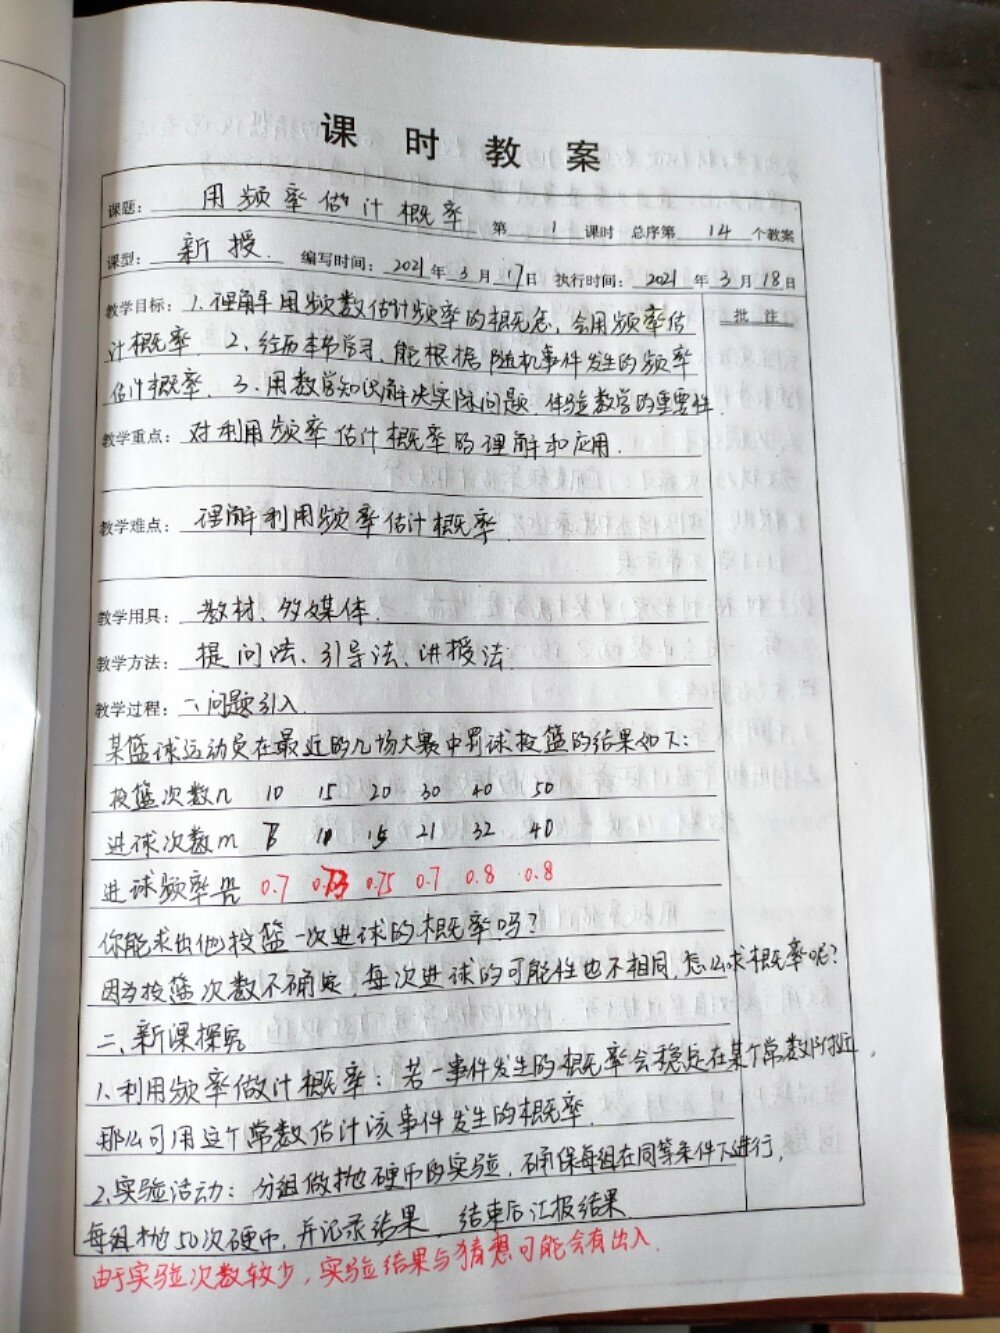 课时教案
课题：用频率做计概率 第 1 课时 总序第 14 个教案
课型：新授. 编写时间：2021年3月17日 执行时间：2021年3月18日
教学目标：1.理解用频数估计频率的概念，会用频率估
批注
计概率. 2、经历本节学习、能根据随机事件发生的频率
估计概率. 3.用数学知识解决实际问题，体验数学的重要性.
教学重点：对利用频率估计概率的理解和应用.
教学难点：理解利用频率估计概率.
教学用具：教材、多媒体.
教学方法：提问法、引导法、讲授法.
教学过程：一、问题引入.
某篮球运动员在最近的几场大赛中罚球投篮的结果如下：
投篮次数n 10 15 20 30 40 50
进球次数m 11 15 21 32 40
进球频率m/n 0.7 0.73 0.75 0.7 0.8 0.8
你能求出他投篮一次进球的概率吗？
因为投篮次数不确定，每次进球的可能性也不相同，怎么求概率呢？
二、新课探究
1、利用频率做计概率：若一事件发生的概率会稳定在某个常数附近，
那么可用这个常数估计该事件发生的概率.
2、实验活动：分组做抛硬币的实验，确保每组在同等条件下进行，
每组抛50次硬币，并记录结果，结束后汇报结果.
由于实验次数较少，实验结果与猜想可能会有出入.